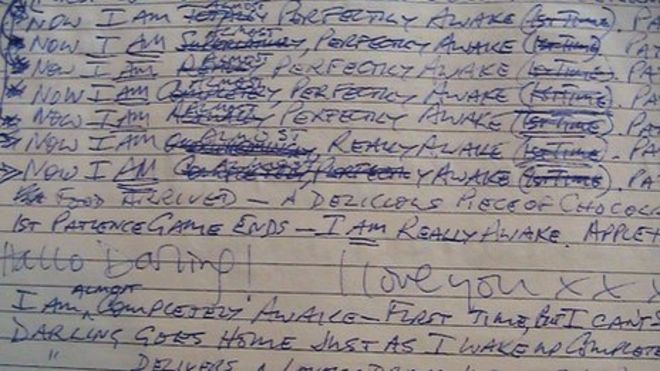 NOW I AM ALMOST PERFECTLY AWAKE (1ST TIME). PA
NOW I AM ALMOST, PERFECTLY AWAKE (1ST TIME). PAT
NOW I AM ALMOST, PERFECTLY AWAKE (1ST TIME). PA
NOW I AM ALMOST, PERFECTLY AWAKE (1ST TIME). PA
NOW I AM ALMOST PERFECTLY AWAKE (1ST TIME). PA
NOW I AM ALMOST REALLY AWAKE (1ST TIME). PA
NOW I AM COMPLETELY, PERFECTLY AWAKE (1ST TIME). PA
FOOD ARRIVED – A DELICIOUS PIECE OF CHOCOL
1ST PATIENCE GAME ENDS – I AM REALLY AWAKE. APPLE
Hallo Darling! I love you x x x
I AM ALMOST COMPLETELY AWAKE – FIRST TIME, BUT I CAN'T
DARLING GOES HOME JUST AS I WAKE UP COMPLETE
" DELIVERS A